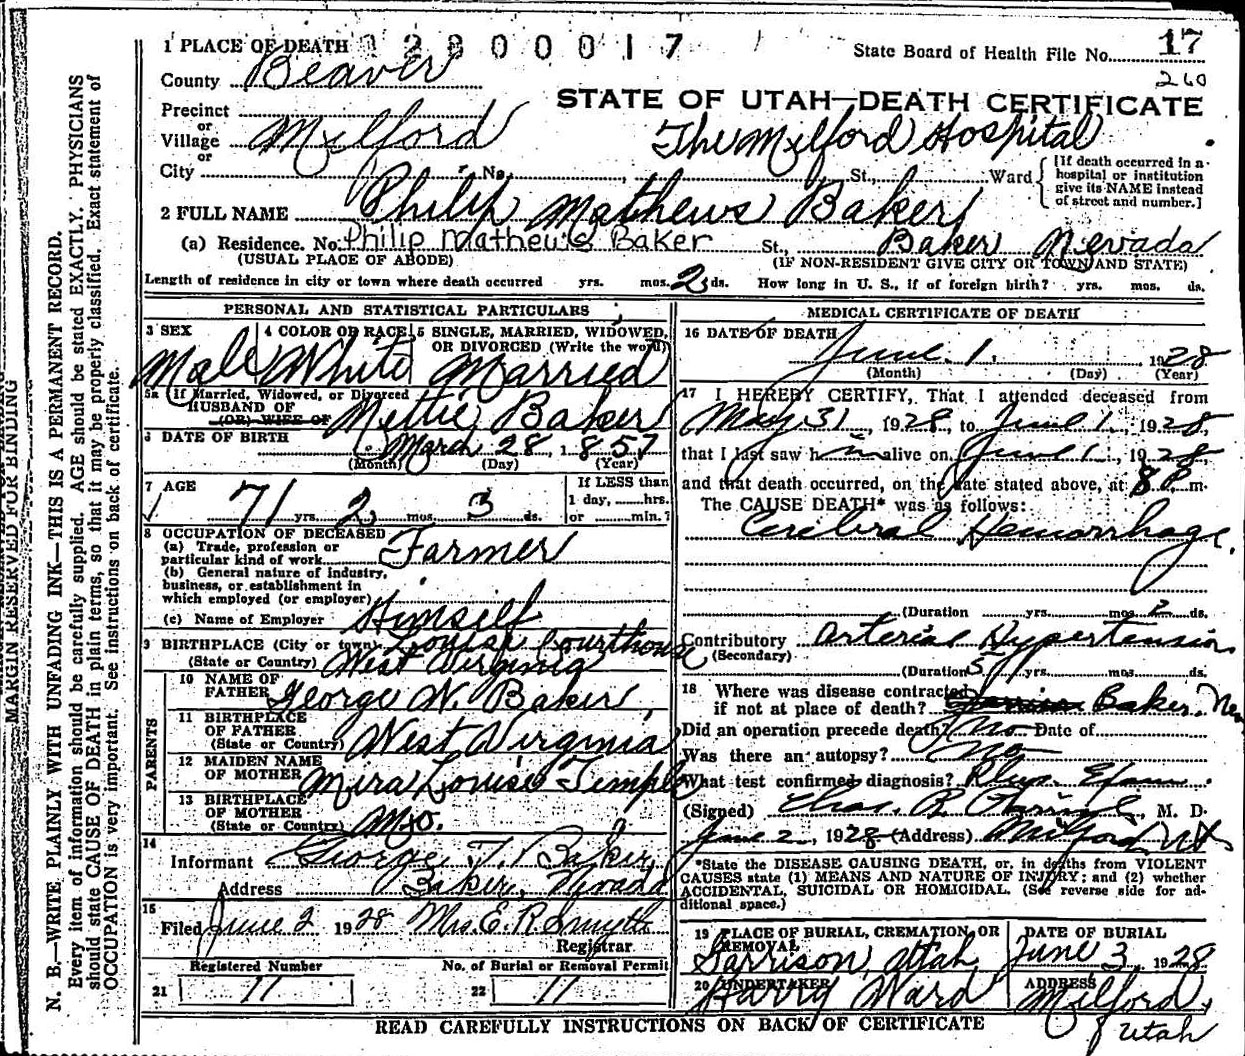 1 PLACE OF DEATH 02800017
State Board of Health File No. 17
County Beaver
260
STATE OF UTAH—DEATH CERTIFICATE
Precinct
or
Village Milford
The Milford Hospital
or
City No. St., Ward
[If death occurred in a hospital or institution give its NAME instead of street and number.]
2 FULL NAME Philip Mathews Baker
(a) Residence. No. Philip Mathews Baker St., Baker Nevada
(USUAL PLACE OF ABODE) (IF NON-RESIDENT GIVE CITY OR TOWN AND STATE)
Length of residence in city or town where death occurred yrs. mos. 2 ds. How long in U. S., if of foreign birth? yrs. mos. ds.
PERSONAL AND STATISTICAL PARTICULARS
3 SEX 4 COLOR OR RACE 5 SINGLE, MARRIED, WIDOWED,
OR DIVORCED (Write the word)
Male White Married
5a (If Married, Widowed, or Divorced
HUSBAND OF
(OR) WIFE OF Mettie Baker
6 DATE OF BIRTH March 28, 1857
(Month) (Day) (Year)
7 AGE
71 yrs. 2 mos. 3 ds.
If LESS than
1 day, hrs.
or min.?
8 OCCUPATION OF DECEASED
(a) Trade, profession or
particular kind of work Farmer
(b) General nature of industry,
business, or establishment in
which employed (or employer)
(c) Name of Employer Himself
9 BIRTHPLACE (City or town) Louisa Courthouse
(State or Country) West Virginia
PARENTS
10 NAME OF
FATHER George W. Baker
11 BIRTHPLACE
OF FATHER
(State or Country) West Virginia
12 MAIDEN NAME
OF MOTHER Mira Louise Temple
13 BIRTHPLACE
OF MOTHER
(State or Country) Mo.
14
Informant George T. Baker
Address Baker, Nevada
15
Filed June 2 1928 Mrs. E. R. Smyth
Registrar
Registered Number No. of Burial or Removal Permit
21 17 22 17
MEDICAL CERTIFICATE OF DEATH
16 DATE OF DEATH
June 1, 1928
(Month) (Day) (Year)
17 I HEREBY CERTIFY, That I attended deceased from
May 31, 1928, to June 1, 1928,
that I last saw him alive on June 1, 1928,
and that death occurred, on the date stated above, at 8 P. m.
The CAUSE DEATH* was as follows:
Cerebral Hemorrhage.
(Duration yrs. mos. 2 ds.
Contributory Arterial Hypertension
(Secondary)
(Duration 5 yrs. mos. ds.
18 Where was disease contracted
if not at place of death? Baker, Nev
Did an operation precede death? No Date of
Was there an autopsy? No
What test confirmed diagnosis? Phys. Exam
(Signed) Chas. R. M. D.
June 2, 1928 (Address) Milford Ut
*State the DISEASE CAUSING DEATH, or, in deaths from VIOLENT
CAUSES state (1) MEANS AND NATURE OF INJURY; and (2) whether
ACCIDENTAL, SUICIDAL OR HOMICIDAL. (See reverse side for additional space.)
19 PLACE OF BURIAL, CREMATION, OR
REMOVAL
Garrison, Utah
DATE OF BURIAL
June 3, 1928
20 UNDERTAKER
Harry Ward
ADDRESS
Milford,
Utah
READ CAREFULLY INSTRUCTIONS ON BACK OF CERTIFICATE
MARGIN RESERVED FOR BINDING
N. B.—WRITE PLAINLY WITH UNFADING INK—THIS IS A PERMANENT RECORD.
Every item of information should be carefully supplied. AGE should be stated EXACTLY. PHYSICIANS
should state CAUSE OF DEATH in plain terms, so that it may be properly classified. Exact statement of
OCCUPATION is very important. See instructions on back of certificate.